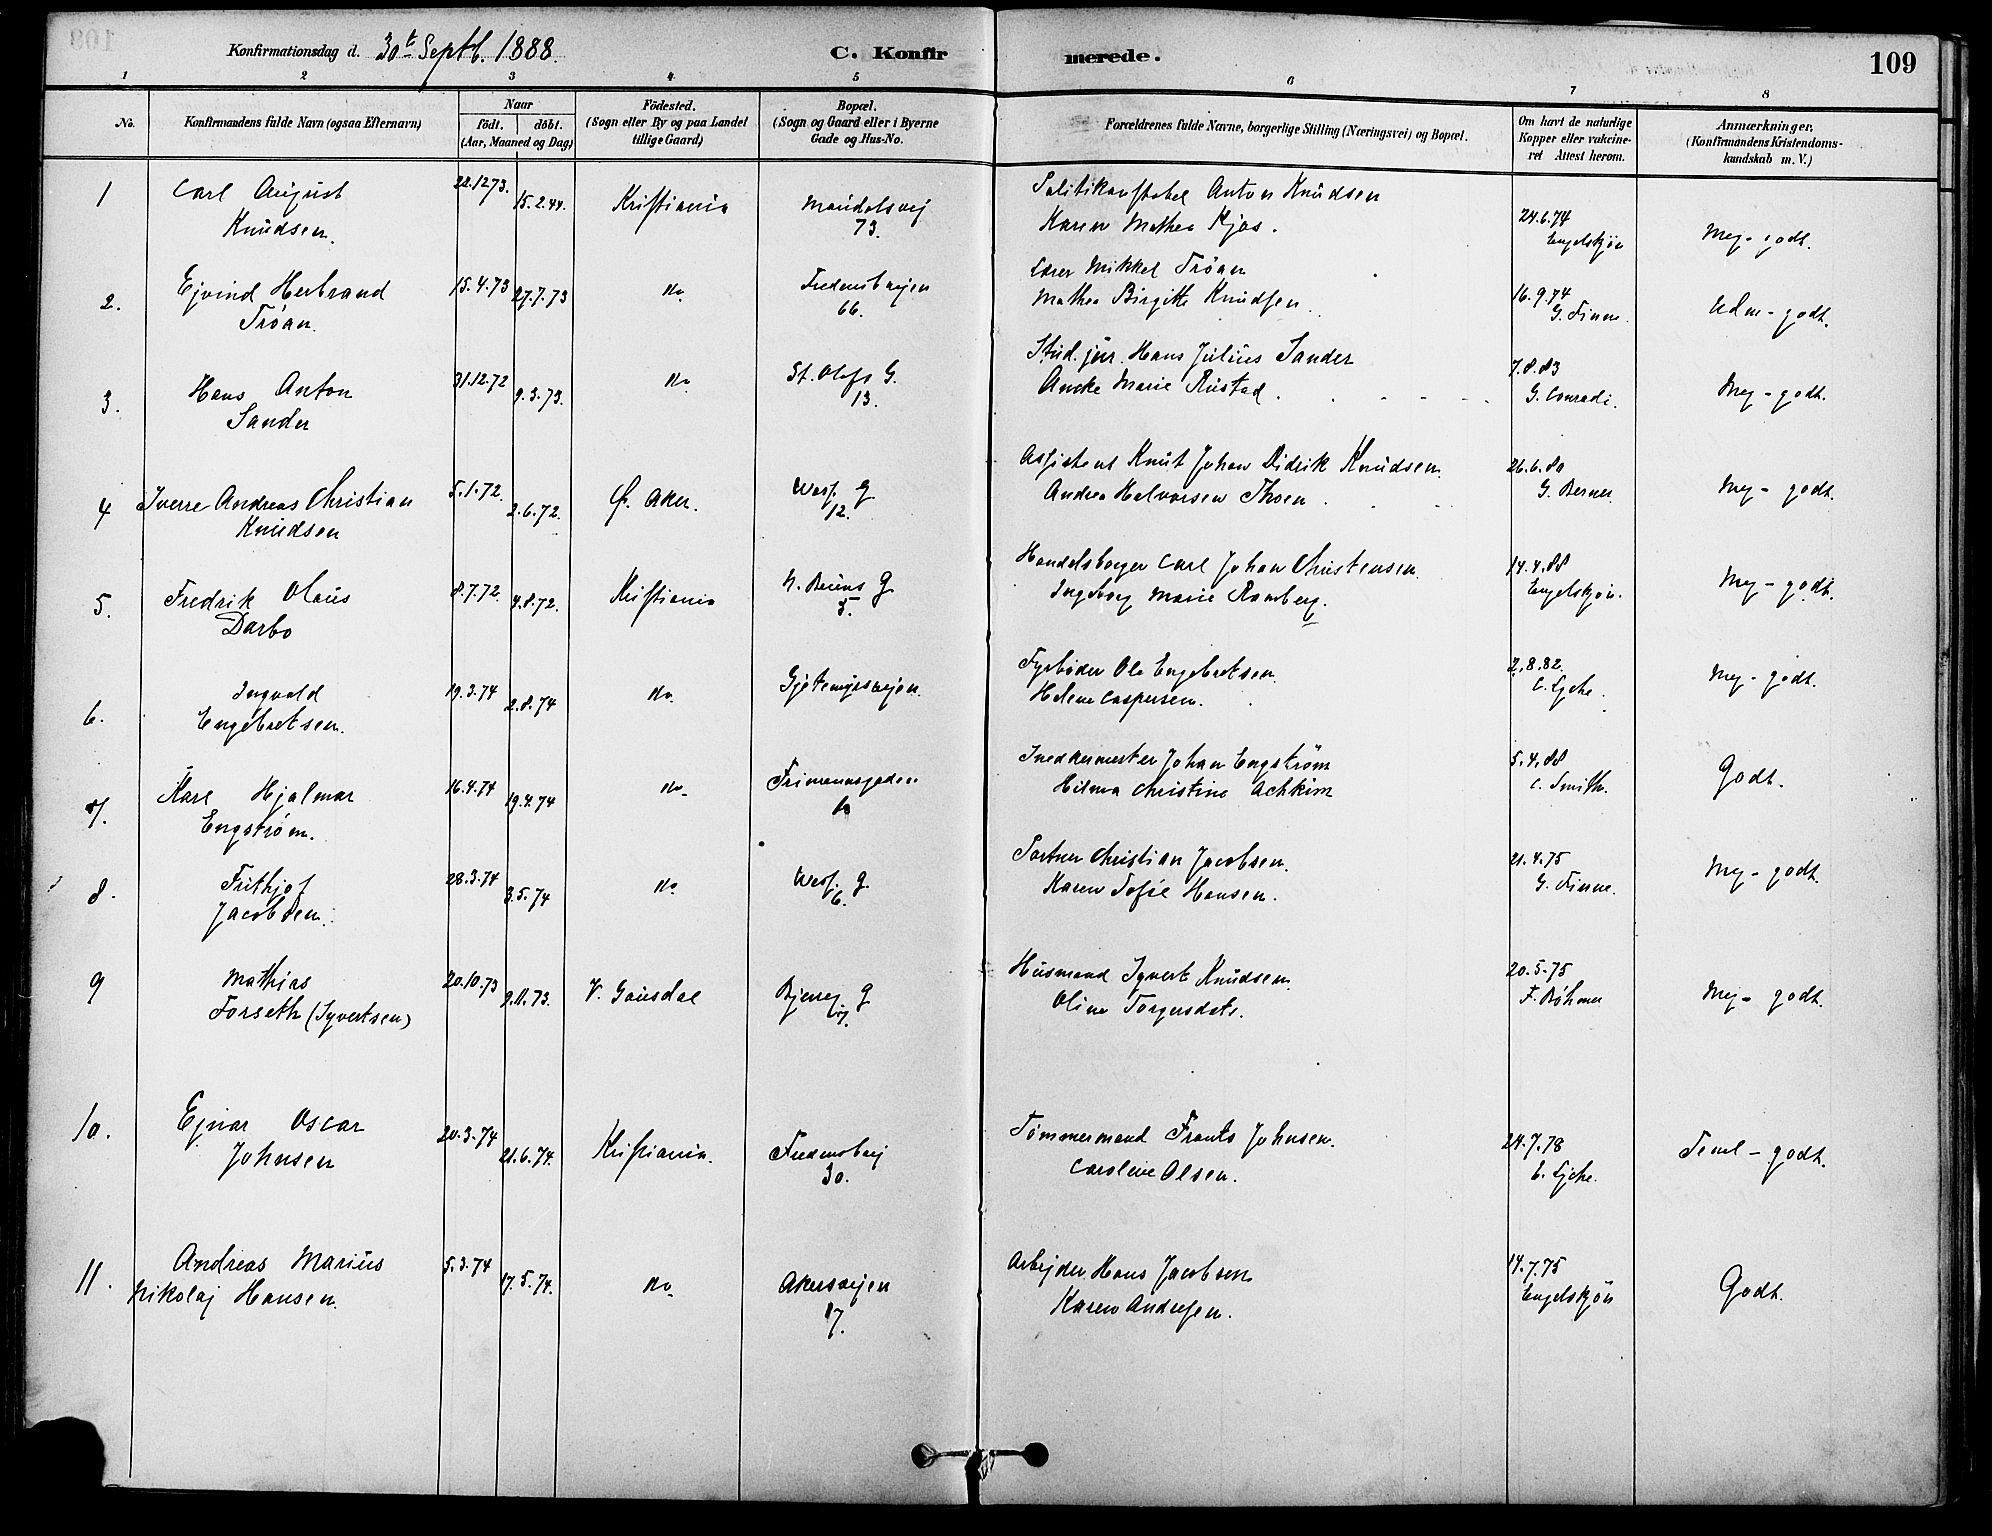 Konfirmationsdag d. 30t Septb. 1888.
C. Konfir merede.
109
1 2 3 4 5 6 7 8
No.
Konfirmandens fulde Navn (ogsaa Efternavn)
Naar
födt. döbt.
(Aar, Maaned og Dag)
Födested.
(Sogn eller By og paa Landet
tillige Gaard)
Bopæl.
(Sogn og Gaard eller i Byerne
Gade og Hus-No.
Forældrenes fulde Navne, borgerlige Stilling (Næringsvei) og Bopæl.
Om havt de naturlige
Kopper eller vakcine-
ret Attest herom.
Anmærkninger,
(Konfirmandens Kristendoms-
kundskab m. V.)
1 Carl August 22.12 73. 15.2.44. Kristiania Maridalsvej Politikonstabel Anton Knudsen 24.6.74
Knudsen. 73. Karen Mathea Kjos. Engelskjøn Meg. godt.
2. Ejvind Herbrand 15.4.73 27.7.73 Do. Fredensbvejen Lærer Mikkel Trøan 16.9.74
Trøan. 66. Mathea Birgitte Knudsen. G. Finne. Udm - godt.
3. Hans Anton 31.12.72 9.3.73. Do St. Olafs G. Stud. jur. Hans Julius Sander 7.8.83
Sander 13. Marie Rustad. G. Conradi. Meg - godt.
4 Sverre Andreas Christian 5.1.72. 2.6.72. Aker. Wess. G Assistent Knut Johan Didrik Knudsen. 26.6.80
Knudsen 12. Andrea Halvorsen Thoen. G. Berner. Meg - godt.
5. Fredrik Olaus 8.7.72. 4.8.72. Kristiania G Handelsborger Carl Johan Christensen. 14.4.88
Darbo 5. Ingeborg Marie Ramberg. Engelskjøn. Meg - godt.
6. Ingvald 19.3.74 2.8.74 Do. Gjetemyrsvejen. Fyrbøder Ole Engebretsen. 2.8.82.
Engebretsen. Helene Caspersen. Meg - godt.
7. Karl Hjalmar 16.4.74 19.4.74 Do. Frimannsgaden Snedkermester Johan Engström 5.4.88
Engstrøm. Hilma Christine Achkim C. Smith. Godt.
8. Frithjof 28.3.74 3.5.74 Do Wess. G. Portner Christian Jacobsen. 21.4.75
Jacobsen. 6. Karen Sofie Hansen. G. Finne. Meg - godt.
9 Mathias 20.10.73 9.11.73. V. Gausdal Bjerreg. G Husmand Syvert Knudsen. 20.5.75
Forseth (Syvertsen) 7. Oline Torgersdatr. F. Bøhmer Meg - godt.
10. Ejnar Oscar 20.3.74 21.6.74. Kristiania. Fredensbvej Tømmermand Frants Johnsen. 24.7.78
Johnsen 30. Caroline Olsen. Teml - godt.
11. Andreas Marius 5.3.74 17.5.74. Do Akersvejen Arbejder Hans Jacobsen 14.7.75
Nikolaj Hansen. 17. Karen Andresen. Engelskjøn Godt.